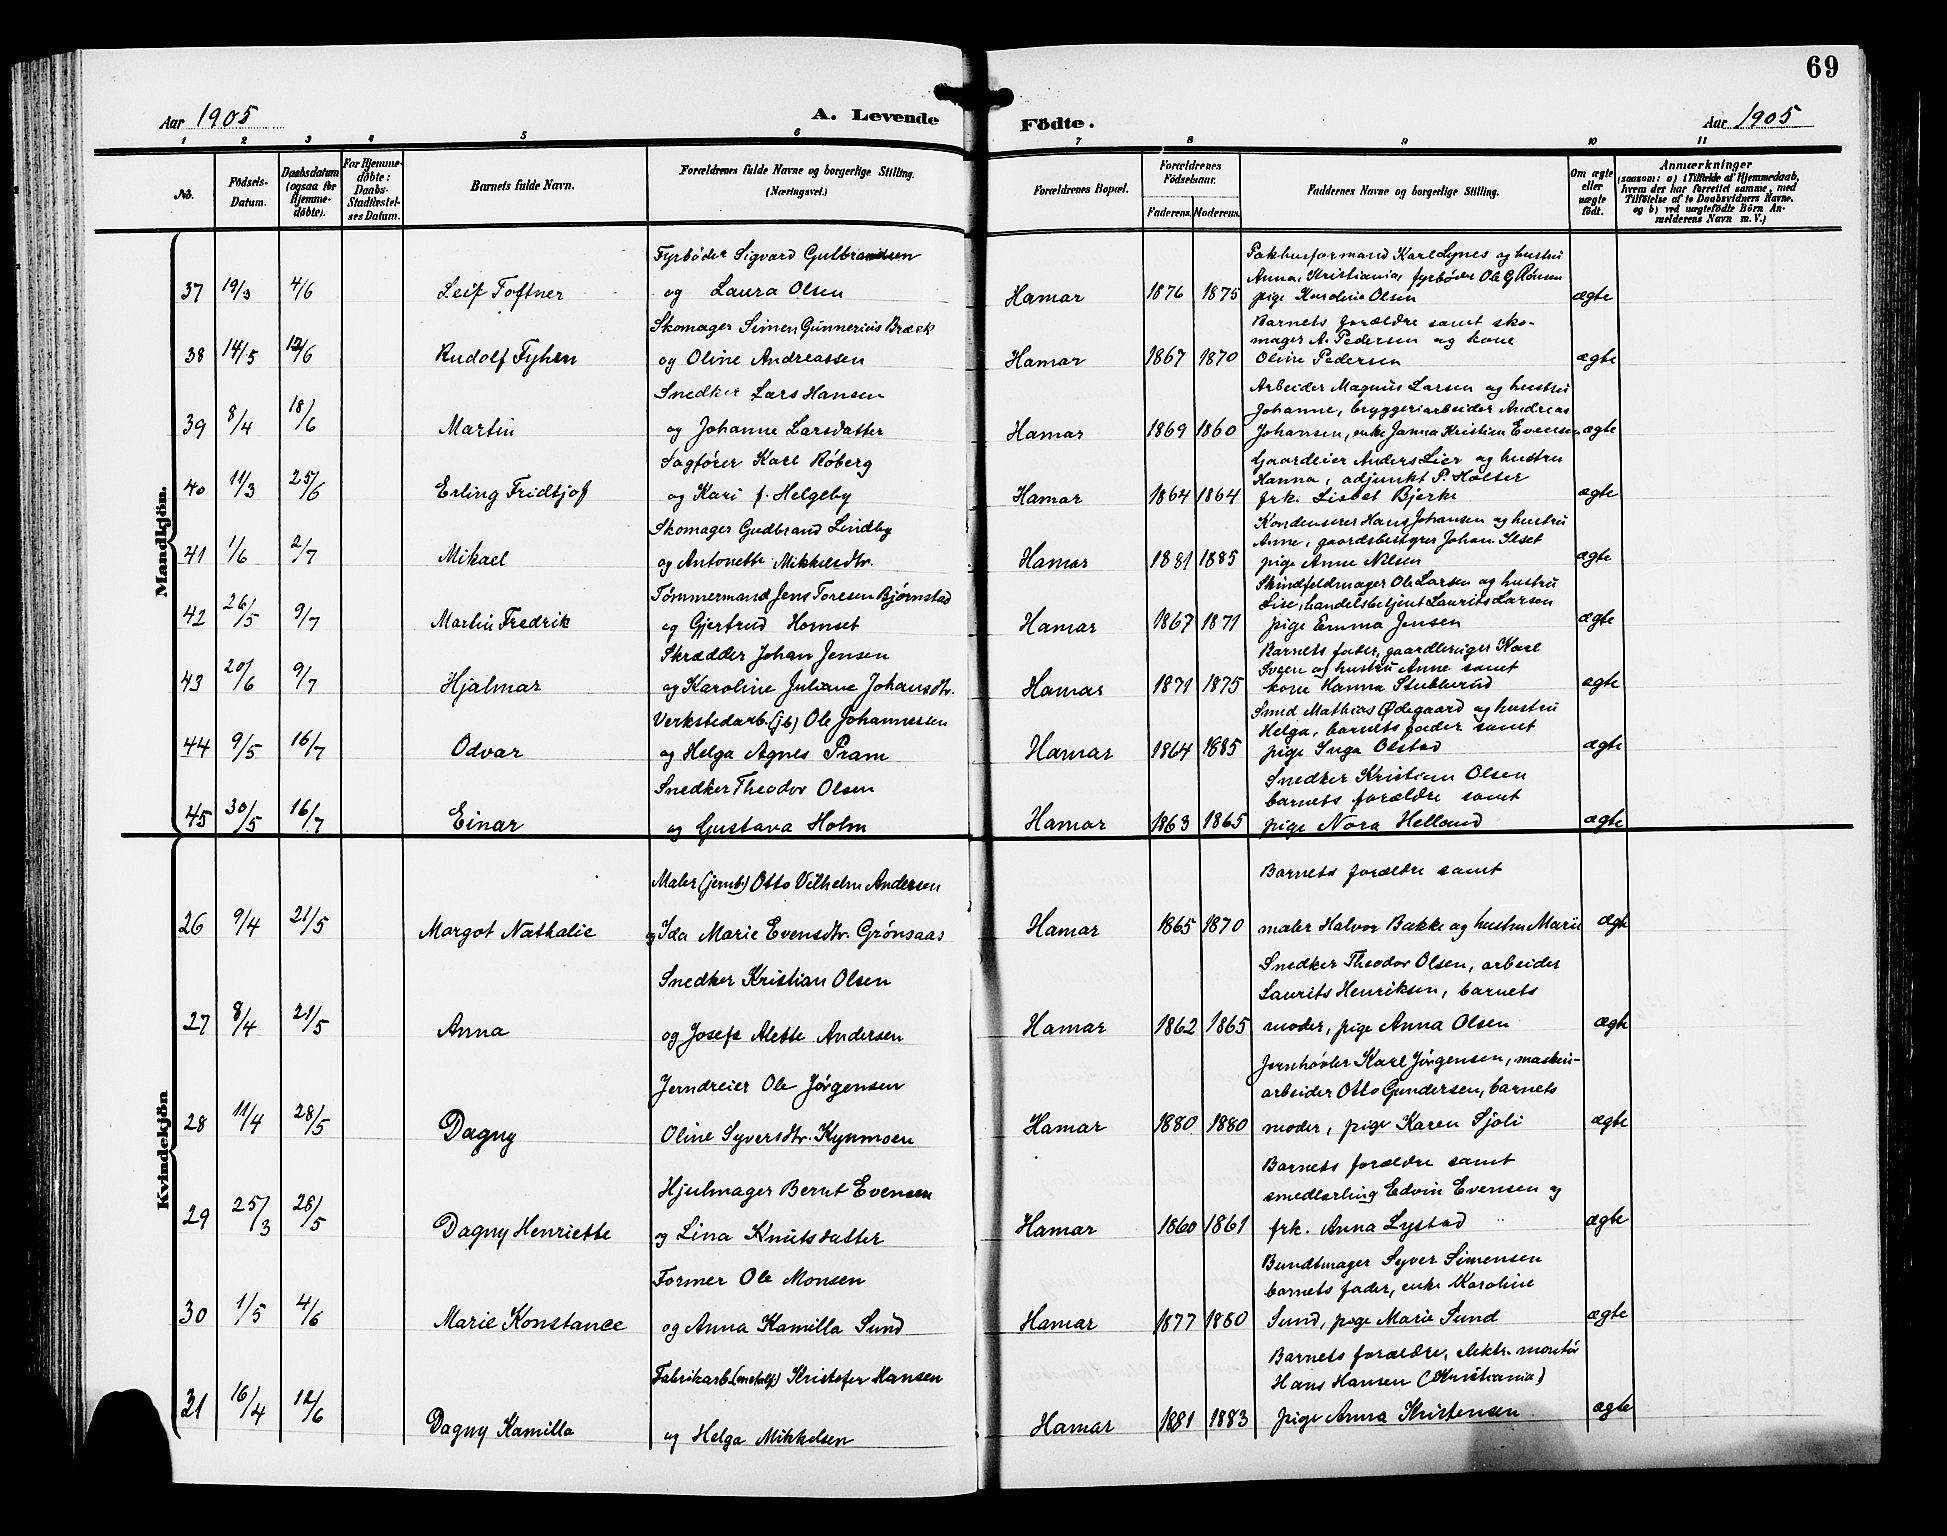 69
Aar 1905
A. Levende
Födte.
Aar 1905
1 2 3 4 5 6 7 8 9 10 11
No.
Födsels-Datum.
Daabsdatum (ogsaa for Hjemme-döbte).
For Hjemme-döbte: Daabs-Stadfæstel-ses Datum.
Barnets fulde Navn.
Forældrenes fulde Navne og borgerlige Stilling. (Næringsvei.)
Forældrenes Bopæl.
Forældrenes Födselsaar.
Faderens. Moderens.
Faddernes Navne og borgerlige Stilling.
Om ægte eller uægte födt.
Anmærkninger
(saasom: a) i Tilfælde af Hjemmedaab, hvem der har forrettet samme, med Tilföielse af to Daabsvidners Navne. og b) ved uægtefödte Börn An-melderens Navn m. V.)
Mandkjön.
Fyrbøder Sigvard Gulbrandsen
Pakhusformand Karl Lynes og hustru
Anna, Kristiania, fyrbøder Ole G. Rönsen
37 19/3 4/6 Leif Toftner og Laura Olsen Hamar 1876 1875 pige Karoline Olsen ægte
Skomager Simen Gunnerius Bræck
Barnets forældre samt sko-
mager A. Pedersen og kone
38 14/5 12/6 Rudolf Fyhen og Oline Andreassen Hamar 1867 1870 Oline Pedersen ægte
Snedker Lars Hansen
Arbeider Magnus Larsen og hustru
Johanne, bryggeriarbeider Andreas
39 8/4 18/6 Martin og Johanne Larsdatter Hamar 1869 1860 Johansen, enke Janna Kristine Evensen ægte
Sagfører Karl Røberg
Gaardeier Anders Lier og hustru
Hanna, adjunkt P. Holter
40 11/3 25/6 Erling Fridtjof og Kari f. Helgeby Hamar 1864 1864 frk. Lisbet Bjerke ægte
Skomager Gudbrand Lindby
Kondenserer Hans Johansen og hustru
Anne, gaardsbestyrer Johan Slset
41 1/6 2/7 Mikael og Antonette Mikkelsdtr. Hamar 1881 1885 pige Anne Nilsen ægte
Tømmermand Jens Toresen Bjørnstad
Skindfeldmager Ole Larsen og hustru
Lise, handelsbetjent Laurits Larson
42 26/5 9/7 Martin Fredrik og Gjertrud Hornset Hamar 1867 1871 pige Emma Jensen ægte
Skrædder Johan Jensen
Barnets fader, gaardbruger Karl
Sveen og hustru Anne samt
43 20/6 9/7 Hjalmar og Karoline Juliane Johansdtr. Hamar 1871 1875 kone Hanna Stublerud ægte
Verkstedarb. (jb) Ole Johannessen
Smed Mathias Ødegaard og hustru
Helga, barnets fader samt
44 9/5 16/7 Odvar og Helga Agnes Pram Hamar 1864 1885 pige Inga Olstad ægte
Snedker Theodor Olsen
Snedker Kristian Olsen
barnets forældre samt
45 30/5 16/7 Einar og Gustava Holm Hamar 1863 1865 pige Nora Helland ægte
Kvindekjön
Maler (jernb.) Otto Vilhelm Andersen
Barnets forældre samt
26 9/4 21/5 Margot Nathalie og Ida Marie Evensdtr. Grönsaas Hamar 1865 1870 maler Halvor Bakke og hustru Marie ægte
Snedker Kristian Olsen
Snedker Theodor Olsen, arbeider
Laurits Henriksen, barnets
27 8/4 21/5 Anna og Josefe Alette Andersen Hamar 1862 1865 moder, pige Anna Olsen ægte
Jerndreier Ole Jørgensen
Jernhøvler Karl Jørgensen, maskin-
arbeider Otto Gundersen, barnets
28 11/4 28/5 Dagny Oline Syversdtr. Kynmoen Hamar 1880 1880 moder, pige Karen Sjøli ægte
Hjulmager Bernt Evensen
Barnets forældre samt
smedlærling Edvin Evensen og
29 25/3 28/5 Dagny Henriette og Lina Knutsdatter Hamar 1860 1861 frk. Anna Lystad ægte
Former Ole Monsen
Bundtmager Syver Simensen
barnets fader, enke Karoline
30 1/5 4/6 Marie Konstance og Anna Kamilla Sund Hamar 1877 1880 Sund, pige Marie Sund ægte
Fabrikarb. (metalf.) Kristofer Hansen
Barnets forældre, elektr. montör
Hans Hansen (Kristiania)
31 16/4 12/6 Dagny Kamilla og Helga Mikkelsen Hamar 1881 1883 pige Anna Kristensen ægte